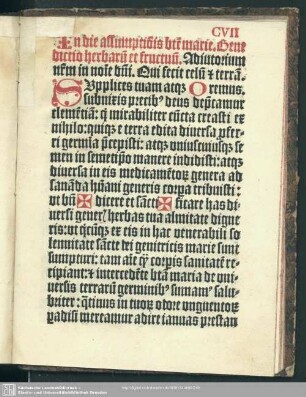 CVII
In die assumptiōis btē marie. Bene
dictio herbarū et fructuū. Adiutorium
nr̄m in noīe dn̄i. Qui fecit celū ⁊ terrā.
Supplices tuam atqꝫ Oremus.
submixis precibꝰ deus dep̄camur
clemētiā: q̇ mirabiliter cūcta creasti ex
nihilo: quiqꝫ e terra edita diuersa ꝓfer
ri germīa p̄cepisti: atqꝫ vniuscuiusqꝫ se
men in semetip̄o manere indidisti: atqꝫ
diuersa in eis medicamētoꝝ genera ad
sanāda hūani generis corpa tribuisti:
vt bn̄ ✠ dicere et sancti ✠ ficare has di
uersi generꝭ herbas tua almitate digne
ris: vt qͥcūqꝫ ex eis in hac venerabili so
lennitate sancte dei genitricis marie sunt
sumpturi: tam aīe qꝫ corpis sanitatē re
cipiant: ⁊ intercedēte btā maria de vni
uersis terrarū germinibꝰ sumamꝰ salu
briter: q̇tinus in tuoꝝ odore vnguentoꝝ
ꝑadisi mereamur adire ianuas prestan